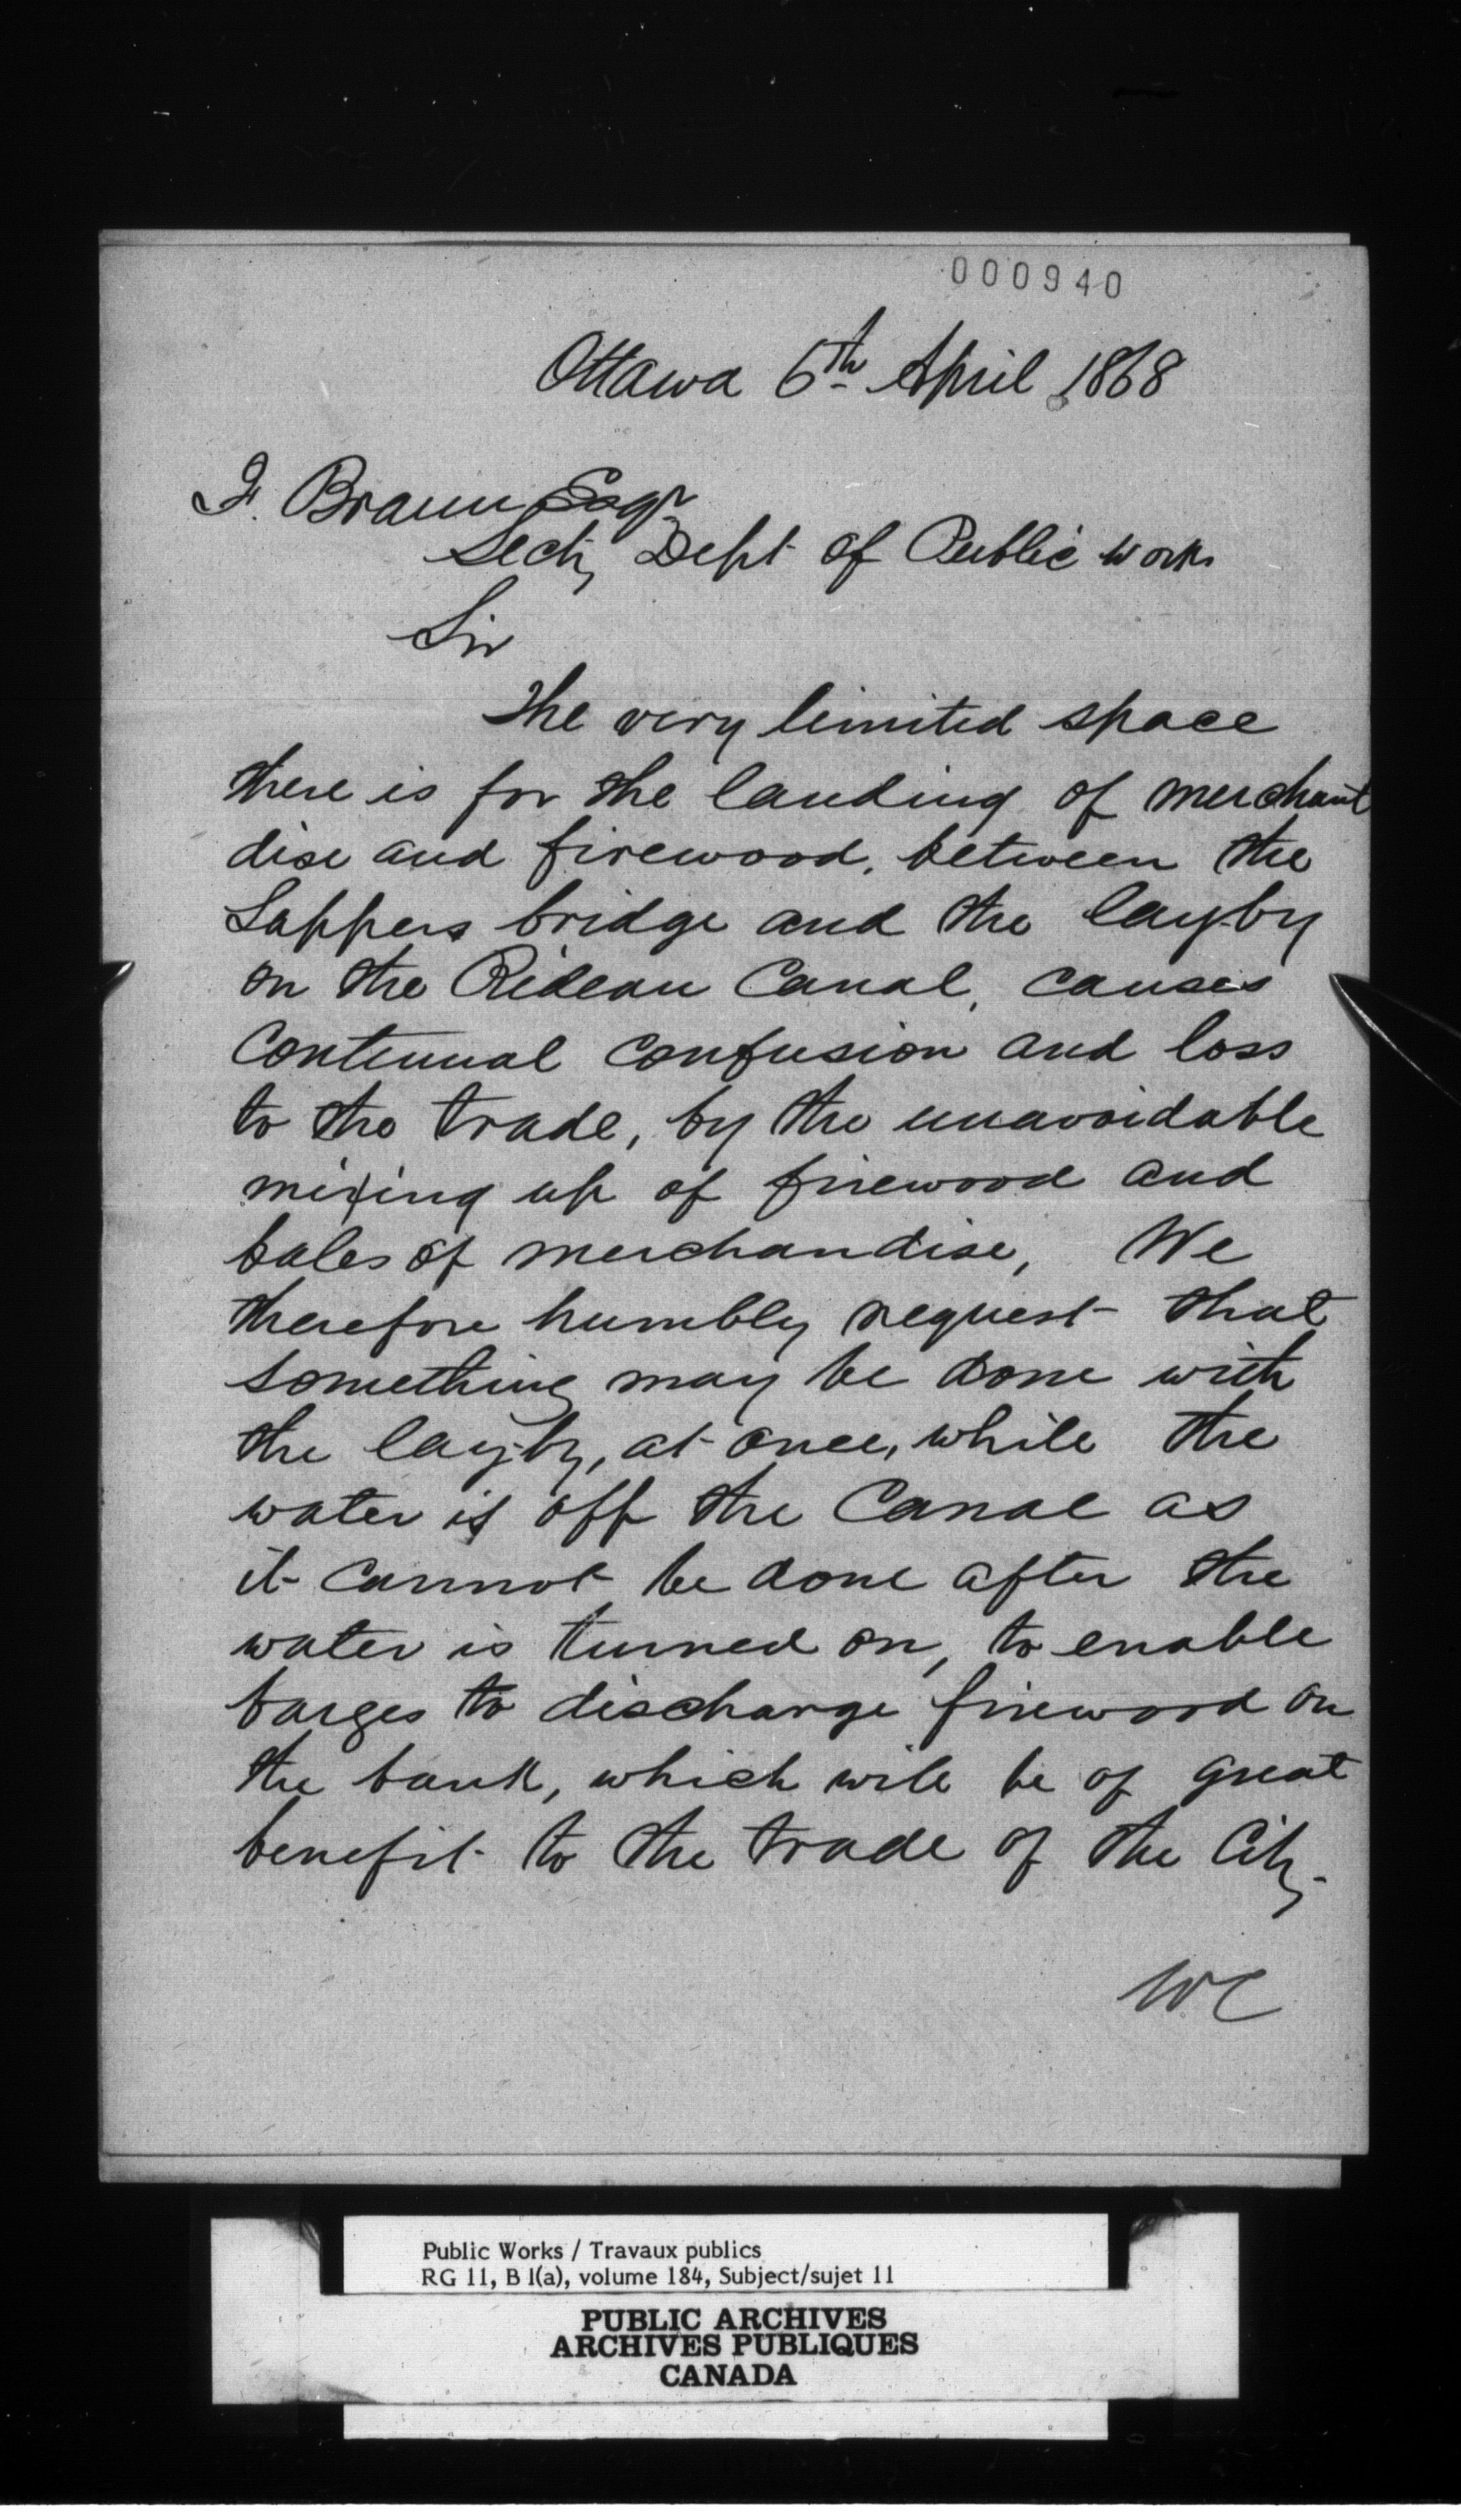 000940
Ottawa 6th April 1868
F. Braun Esqr
Secty Dept of Public Works
Sir
The very limited space
there is for the landing of merchant
dise and firewood, between the
Sappers bridge and the lay-by
on the Rideau Canal, causes
Continual confusion and loss
to the trade, by the unavoidable
mixing up of firewood and
bales of merchandise, We
therefore humbly request that
something may be done with
the lay-by, at once, while the
water is off the Canal as
it cannot be done after the
water is turned on, to enable
barges to discharge firewood on
the bank, which will be of great
benefit to the trade of the City.
We
Public Works / Travaux publics
RG 11, B 1(a), volume 184, Subject/sujet 11
PUBLIC ARCHIVES
ARCHIVES PUBLIQUES
CANADA